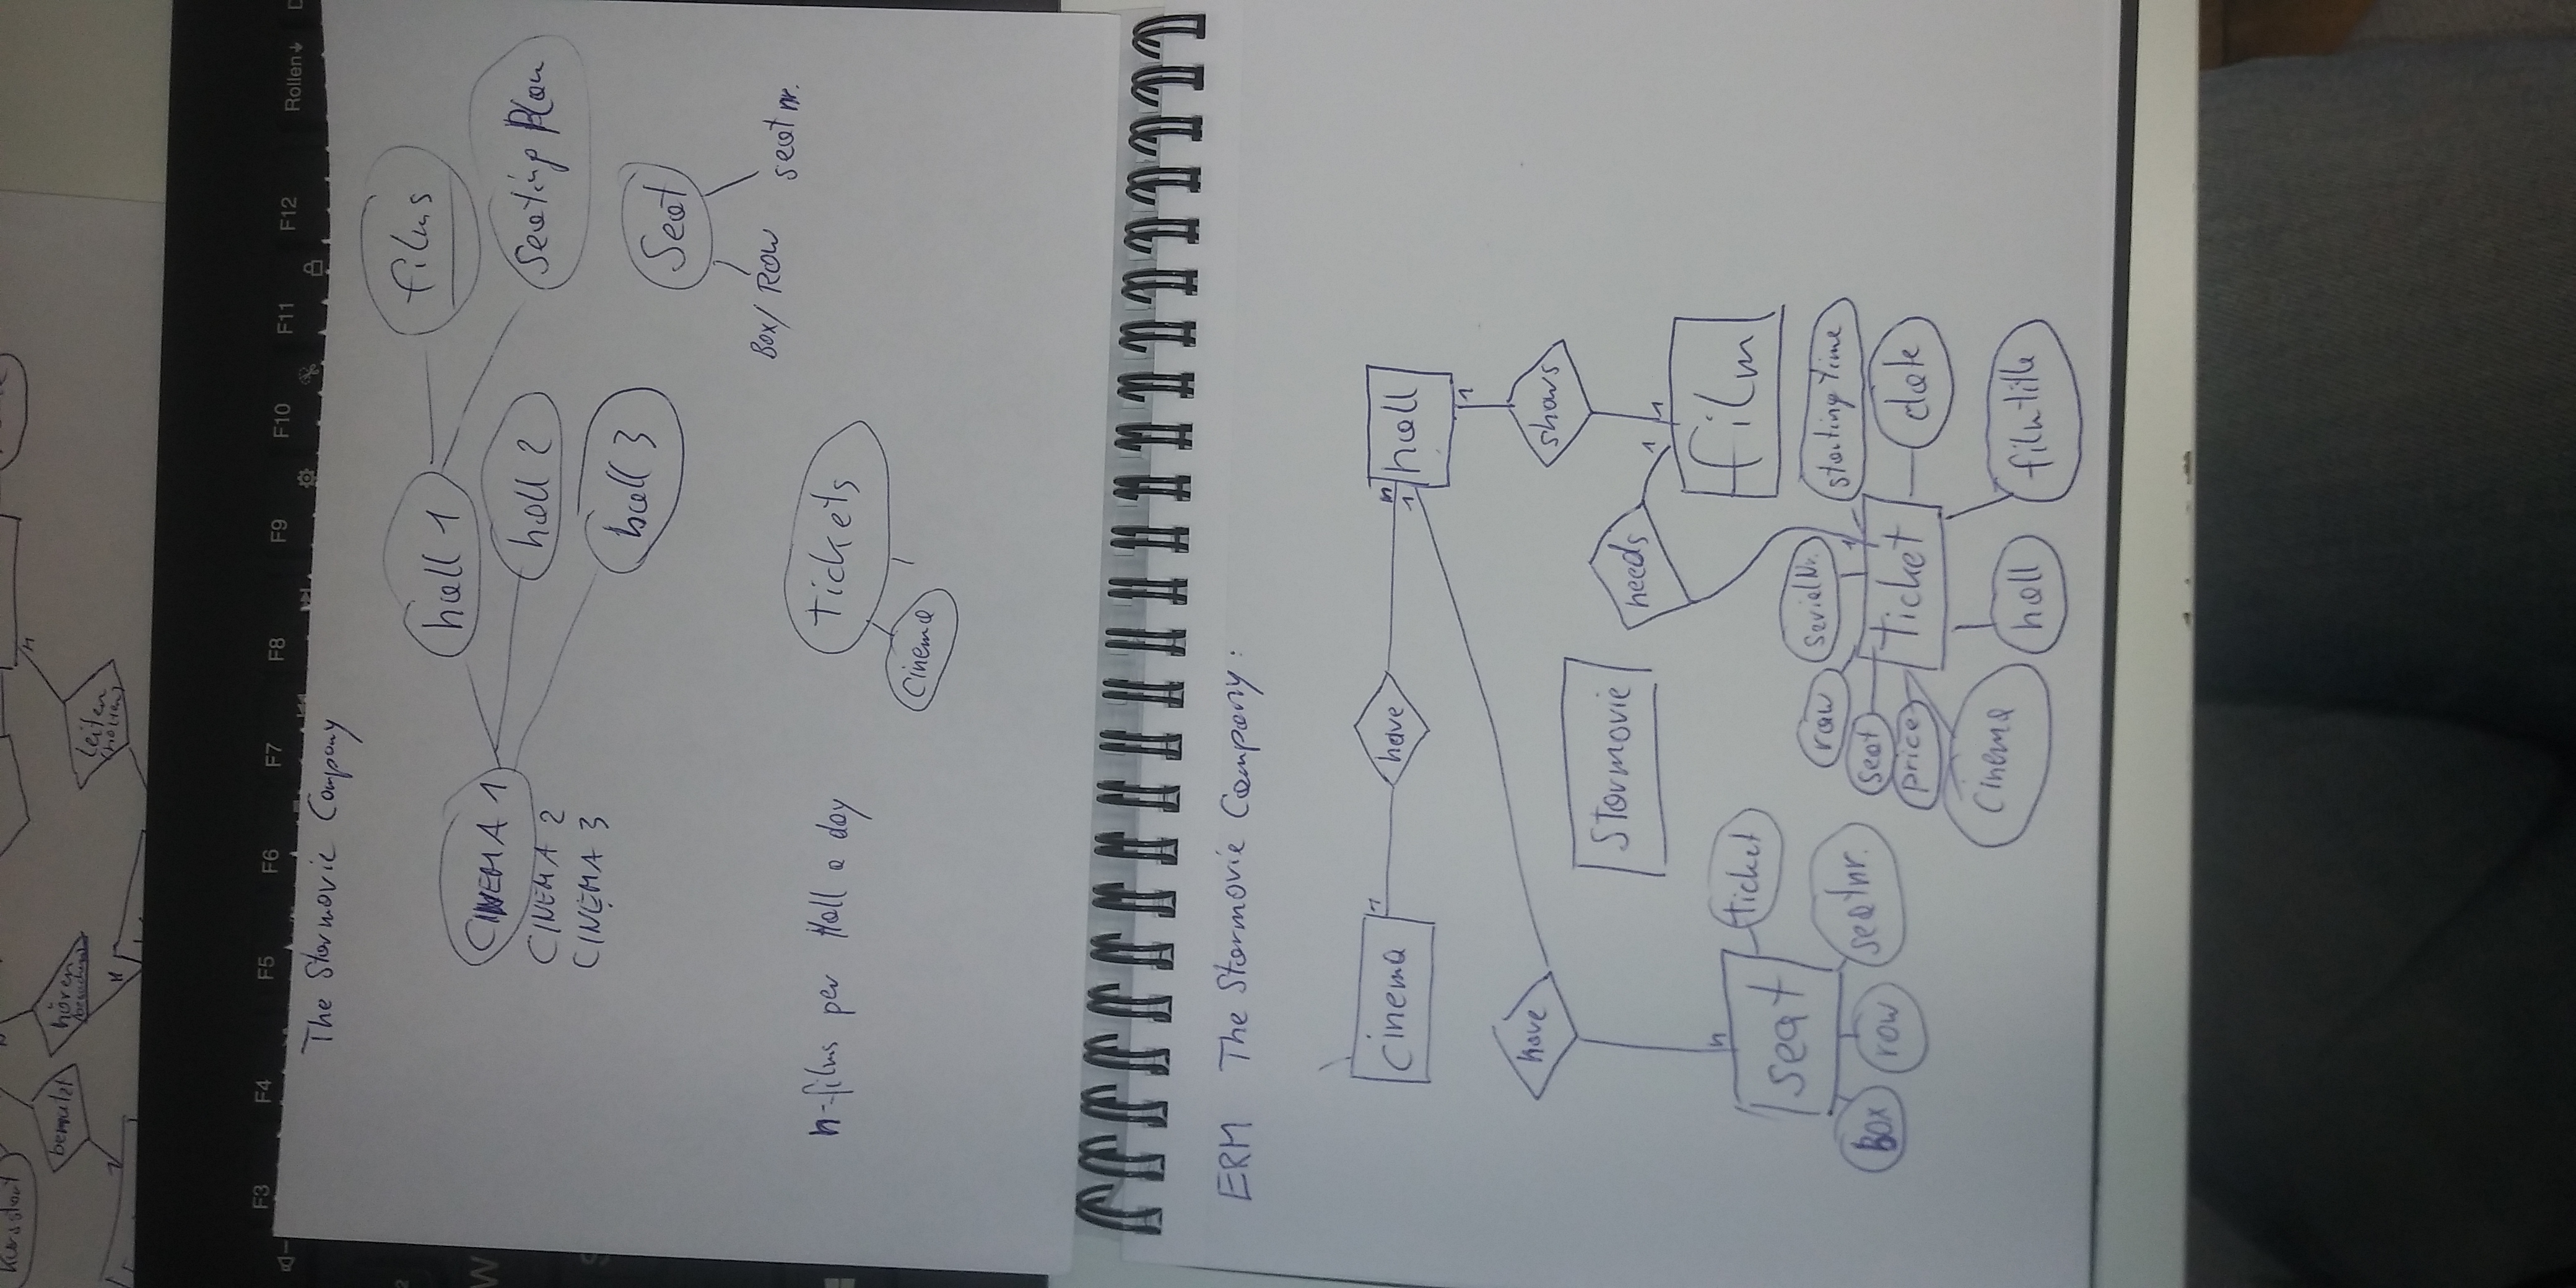 benutzt
hören
leiten
n
n
F3 F4 F5 F6 F7 F8 F9 F10 F11 F12 Rollen
The Starmovie Company
films
hall 1
CINEMA 1
CINEMA 2
CINEMA 3
hall 2
Seating Plan
hall 3
Seat
Box/ Row
seat nr.
n-films per Hall a day
Tickets
Cinema
ERM The Starmovie Company:
Cinema
1
have
n
1
hall
1
have
shows
Starmovie
needs
1
1
film
n
seat
ticket
Box
row
seatnr.
raw
serialNr.
1
starting Time
seat
price
Ticket
date
Cinema
hall
filmtitle